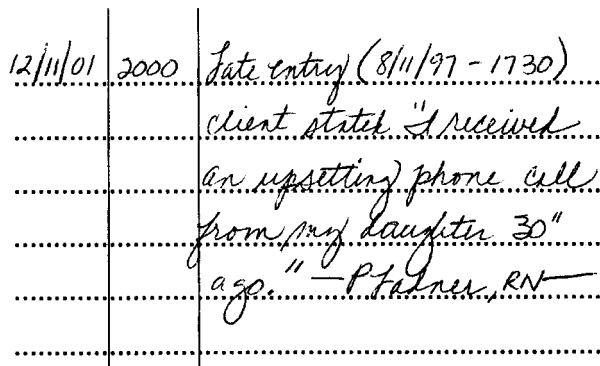 12/11/01 2000 Late entry (8/11/97 - 1730)
client stated "I received
an upsetting phone call
from my daughter 30"
ago." — P Ladner, RN —